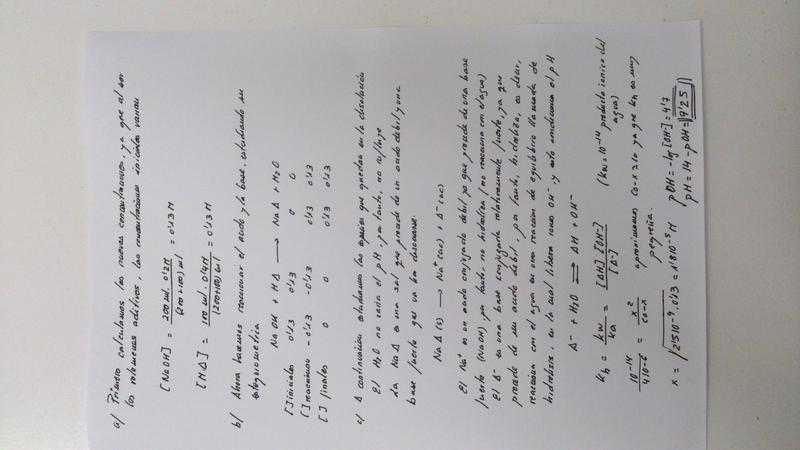 a) Primero calculamos las nuevas concentraciones, ya que al ser
los volúmenes aditivos, las concentraciones iniciales varian
[NaOH] = 200 ml · 0'2M / (200+100) ml = 0'13 M
[HA] = 100 ml · 0'4M / (200+100) ml = 0'13 M
b) Ahora hacemos reaccionar el acido y la base, estudiando su
estequiometria
NaOH + HA ⟶ NaA + H2O
[ ] iniciales 0'13 0'13 0 0
[ ] reaccionan -0'13 -0'13 0'13 0'13
[ ] finales 0 0 0'13 0'13
c) A continuación estudiamos las especies que quedan en la disolución
El H2O no varía el pH, por tanto, no influye
La NaA es una sal que procede de un acido débil y una
base fuerte que va ha disociarse.
NaA (s) ⟶ Na+ (ac) + A- (ac)
El Na+ es un acido conjugado débil ya que procede de una base
fuerte (NaOH) por tanto, no hidroliza (no reacciona con el agua)
El A- es una base conjugada relativamente fuerte, ya que
procede de un acido débil, por tanto, hidroliza, es decir,
reacciona con el agua en una reacción de equilibrio llamada de
hidrolisis, en la cual libera iones OH-, y esto condiciona el pH
A- + H2O ⇌ AH + OH-
Kh = Kw / Ka = [AH] [OH-] / [A-] (Kw = 10^-14 producto ionico del
agua)
10^-14 / 4·10^-6 = x^2 / Co-x aproximamos Co-x≈Co ya que Kh es muy
pequeña.
x = √2'5·10^-9 · 0'13 = 1'8·10^-5 M pOH = -lg [OH-] = 4'7
pH = 14 - pOH = 9'25